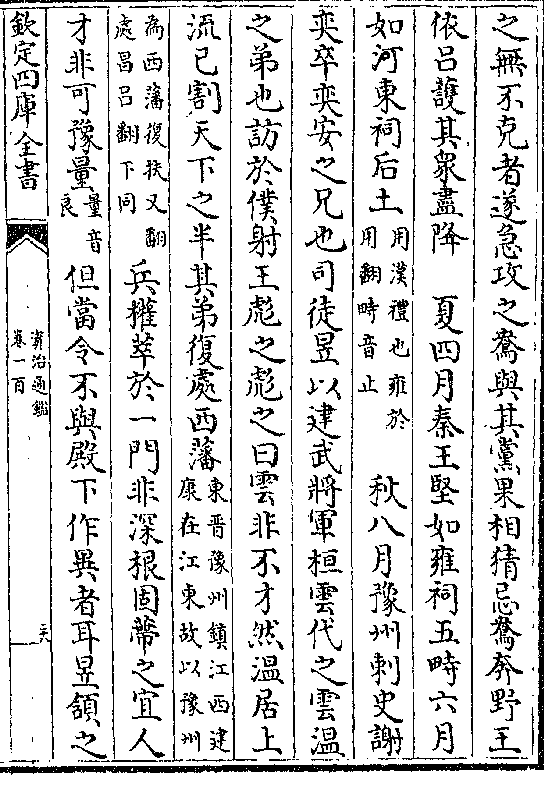 之無不克者遂急攻之鴦與其黨果相猜忌鴦奔野王
依呂護其衆盡降　夏四月秦王堅如雍祠五畤六月
如河東祠后土
用漢禮也雍於
用翻畤音止
秋八月豫州刺史謝
奕卒奕安之兄也司徒昱以建武將軍桓雲代之雲温
之弟也訪於僕射王彪之彪之曰雲非不才然温居上
流已割天下之半其弟復處西藩
東晉豫州鎮江西建
康在江東故以豫州
為西藩復扶又翻
處昌呂翻下同
兵權萃於一門非深根固蔕之宜人
才非可豫量
量音
良
但當令不與殿下作異者耳昱頷之
欽定四庫全書
資治通鑑
卷一百